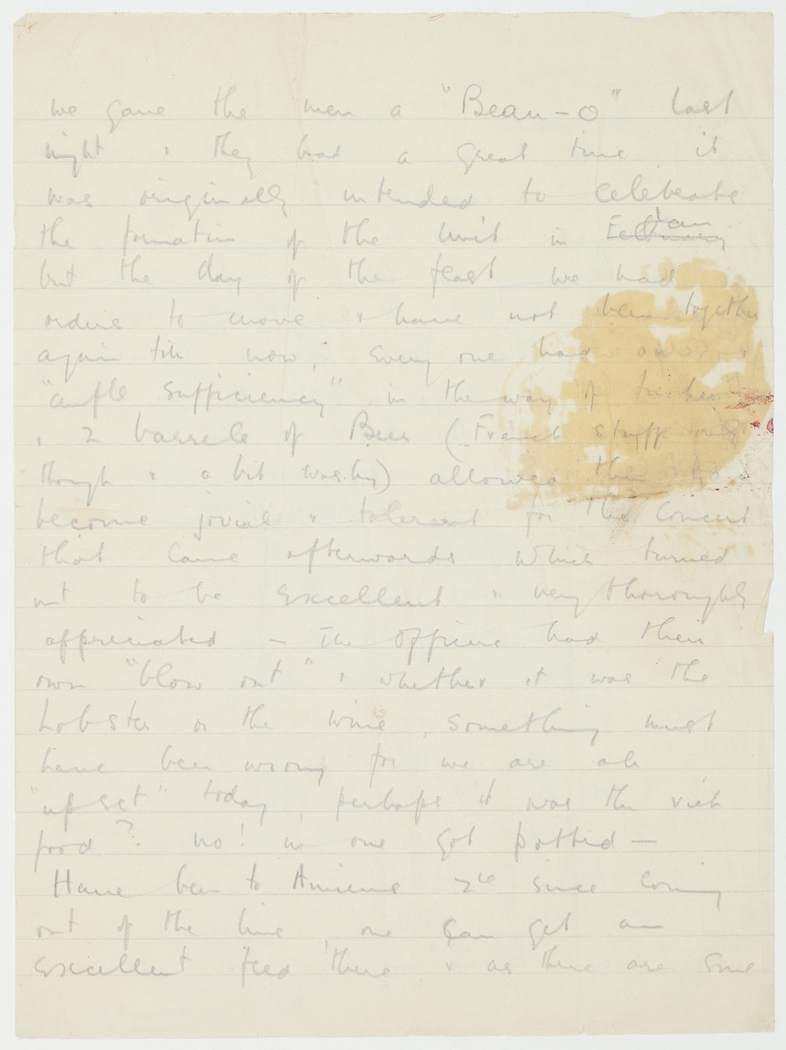 we gave the men a "Bean-o" last
night & they had a great time it
was originally intended to celebrate
the formation of the Unit in Jan
but the day of the feast we had
orders to move & have not been together
again till now, every one had
"ample sufficiency" in the way of
& 2 barrels of Beer (French stuff
though & a bit washy) allowed the
become jovial & tolerant for the Concert
that came afterwards which turned
out to be excellent & very thoroughly
appreciated — The Officers had their
own "blow out" & whether it was the
Lobster or the wine, something must
have been wrong for we are all
"upset" today, perhaps it was the rich
food? no! no one got potted —
Have been to Amiens 2ce since coming
out of the line, one can get an
excellent feed there, & as there are some